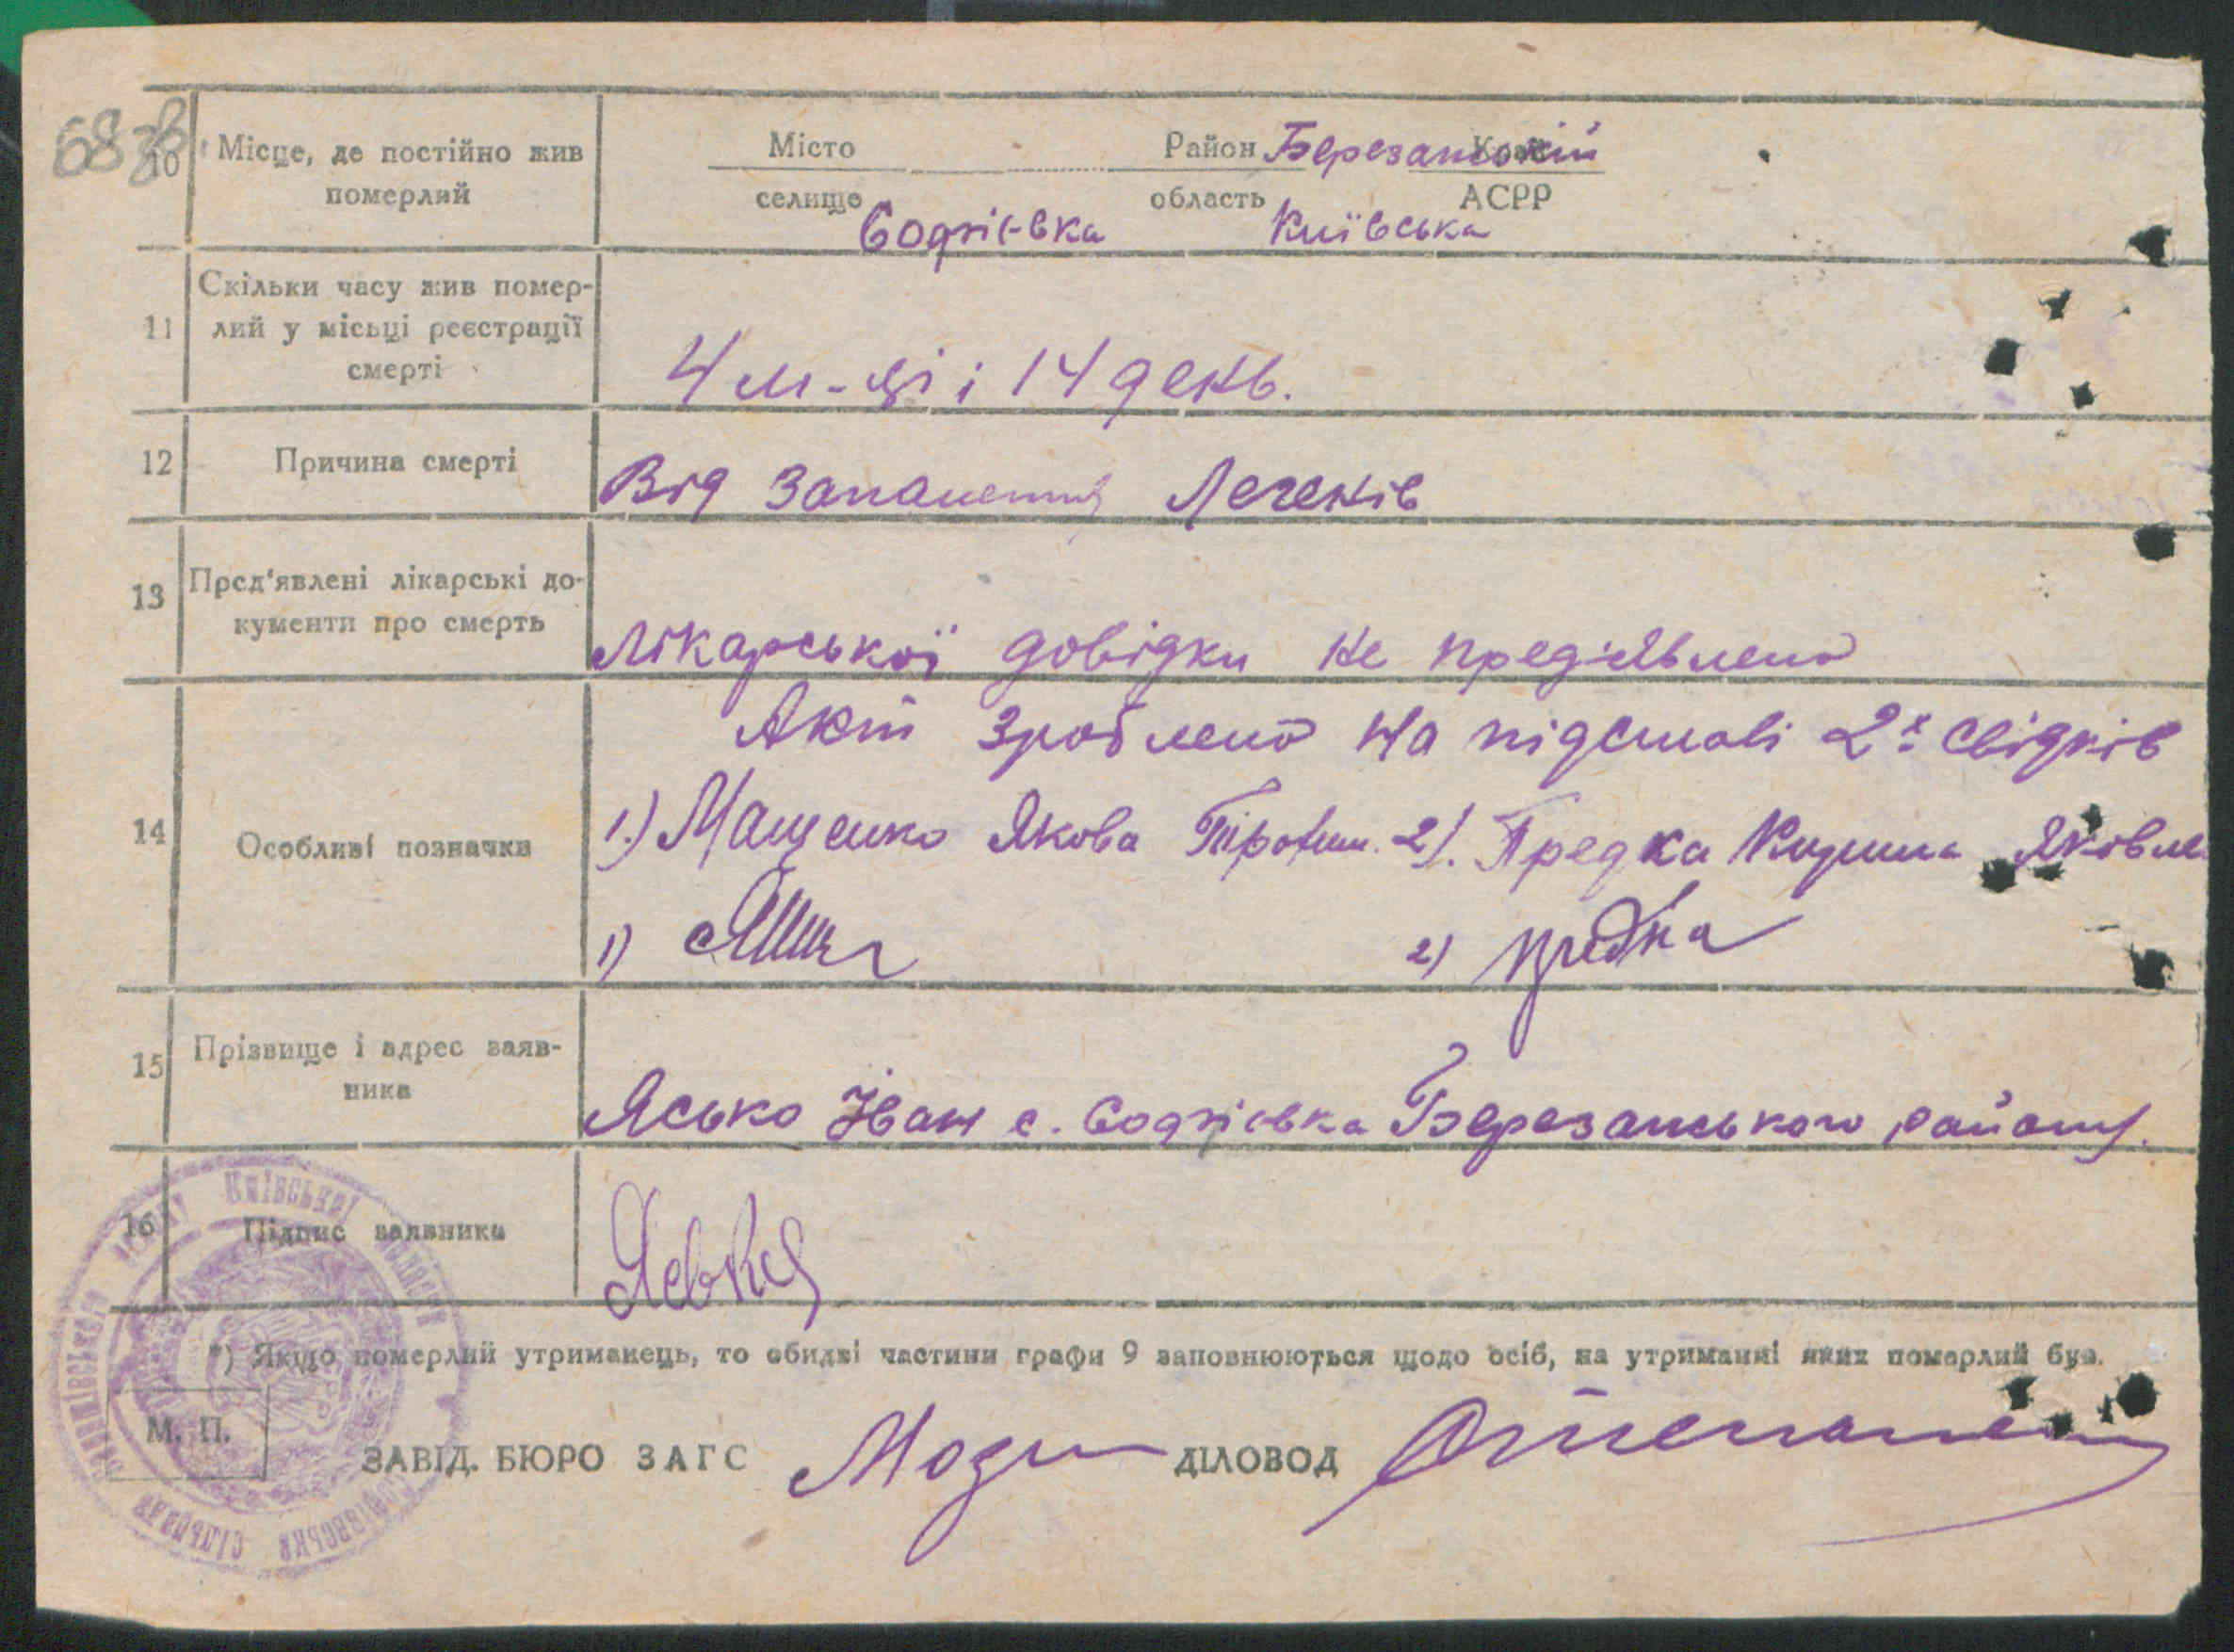 68
10 Місце, де постійно жив померлий
Місто Район Березанський Край
селище область АСРР
Софіївка Київська
11 Скільки часу жив помер-
лий у місьці реєстрації
смерті
4 м-ці і 14 день.
12 Причина смерті
Від Запаления Легенів
13 Пред'явлені лікарські до-
кументи про смерть
Лікарської довідки не пред'явлено
Акт зроблено на підставі 2х свідків
14 Особливі позначки
1.) Мащенко Якова Трохим. 2). Предка Яковле
1)
2) предка
15 Прізвище і адрес заяв-
ника
Ясько Іван с. Софіївка Березанського району.
16 Підпис заявника
Київської області
Софіївська сільрада
*) Якщо померлий утриманець, то обидві частини графи 9 заповнюються щодо осіб, на утриманні яких померлий був.
М. П.
ЗАВІД. БЮРО ЗАГС ДІЛОВОД